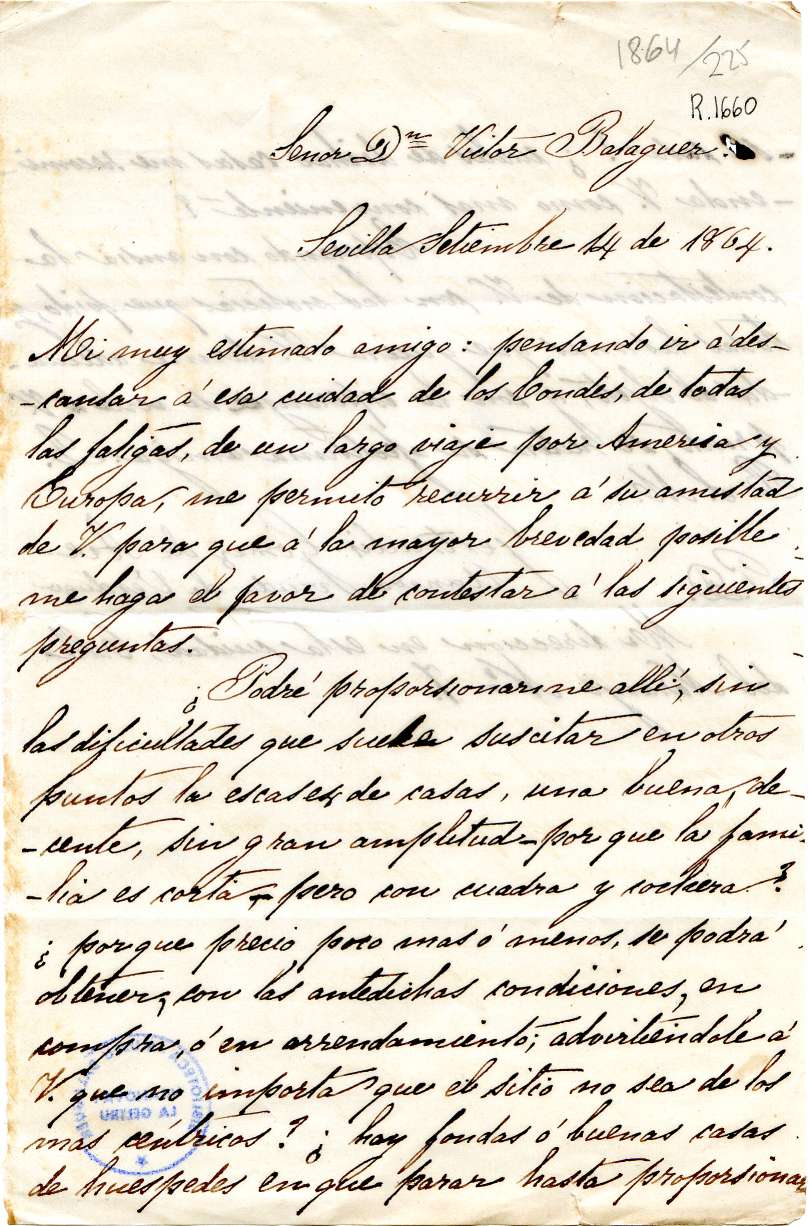 1864/225
R.1660
Señor Dn Victor Balaguer.
Sevilla Setiembre 14 de 1864.
Mi muy estimado amigo: pensando ir á des-
-cansar á esa cuidad de los Condes, de todas
las fatigas, de un largo viaje por America y
Europa, me permito recurrir á su amistad
de V. para que á la mayor brevedad posible
me haga el favor de contestar á las siguientes
preguntas.
¿Podré proporsionarme allí, sin
las dificultades que suele suscitar en otros
puntos la escases de casas, una buena, de-
-cente, sin gran amplitud - por que la fami-
-lia es corta - pero con cuadra y cochera?
¿por que precio, poco mas ó menos, se podrá
obtener, con las antedichas condiciones, en
compra, ó en arrendamiento; advirtiéndole á
V. que no importa que el sitio no sea de los
mas céntricos? ¿hay fondas ó buenas casas
de huespedes en que parar hasta proporsionar